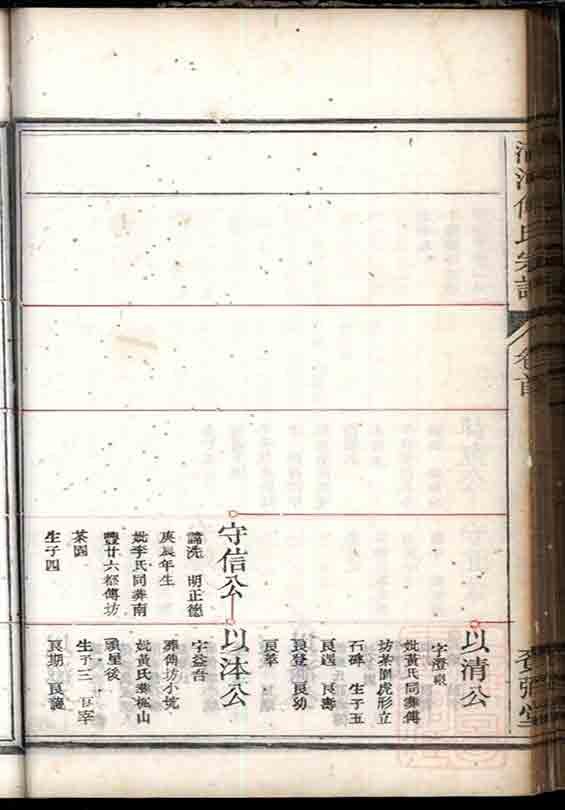 傅氏宗譜
卷首
以清公
妣黃氏同葬傅
坊茶園虎形立
石碑 生子五
良遇 良壽
良登 良幼
良萃
守信公
諱洗 明正德
庚辰年生
妣李氏同葬南
豐廿六都傅坊
茶園
生子四
以沐公
字益吾
葬傅坊小坑
妣黃氏葬楓山
頭星後
生子三 良宰
良期 良襲